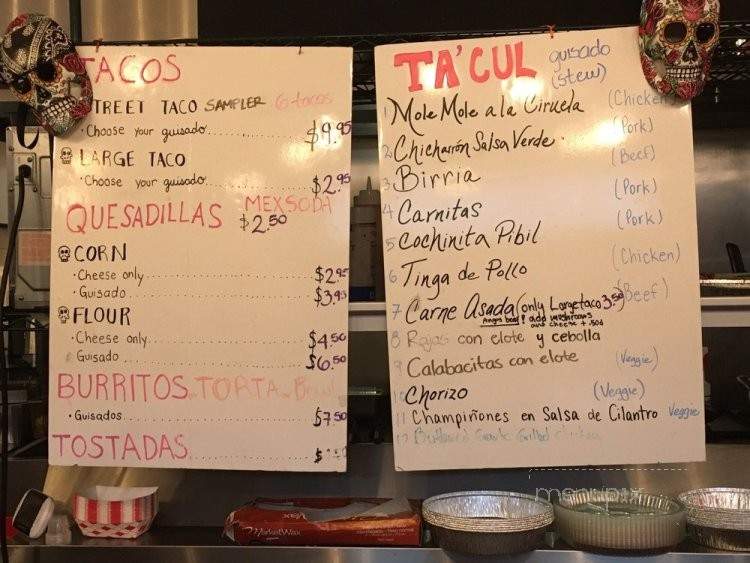 TACOS
STREET TACO SAMPLER 6 tacos
• Choose your guisado $9.95
LARGE TACO
• Choose your guisado $2.95
QUESADILLAS MEX SODA $2.50
CORN
• Cheese only $2.95
• Guisado $3.95
FLOUR
• Cheese only $4.50
Guisado $6.50
BURRITOS TORTA
• Guisados $7.50
TOSTADAS $
TA'CUL guisado (stew)
1 Mole Mole a la Ciruela (Chicken)
2 Chicharrón Salsa Verde (Pork)
3 Birria (Beef)
4 Carnitas (Pork)
5 Cochinita Pibil (Pork)
6 Tinga de Pollo (Chicken)
7 Carne Asada (only Large taco 3.50 (Beef)
Angus beef! add mushrooms
and cheese + .50¢
8 Rajas con elote y cebolla
9 Calabacitas con elote (Veggie)
10 Chorizo (Veggie)
11 Champiñones en Salsa de Cilantro Veggie
12 Grilled
MarketWax
menupix